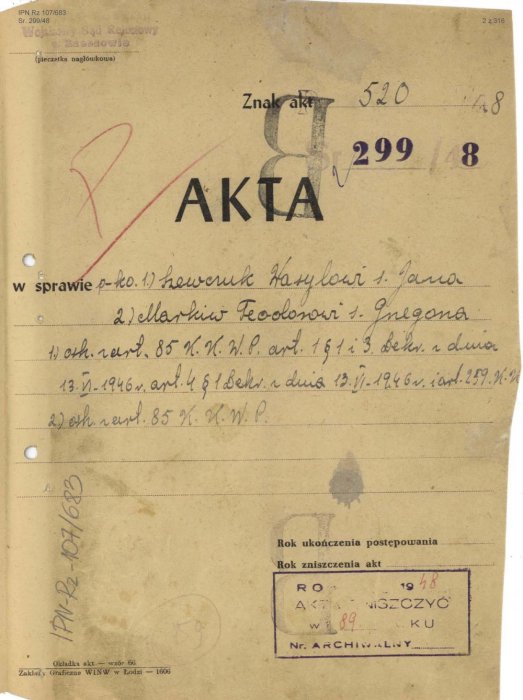 IPN Rz 107/683
Sr. 299/48
2 z 316
Wojskowy Sąd Rejonowy
w Rzeszowie
(pieczątka nagłówkowa)
Znak akt 520 /48
Sr 299/48
AKTA
w sprawie p-ko. 1) Szewczuk Wasylowi s. Jana
2) Markiw Teodorowi s. Grzegorza
1) osk. z art. 85 K.K.W.P. art. 1 § 1 i 3. Dekr. z dnia
13.VI-1946r. art. 4 § 1 Dekr. z dnia 13.VI-1946r. i art. 259. K.K
2) osk. z art. 85 K.K.W.P.
IPN-Rz-107/683
Rok ukończenia postępowania
Rok zniszczenia akt
ROK 1948
AKTA ZNISZCZYĆ
w r. 89 ROKU
Nr. ARCHIWALNY
Okładka akt — wzór 66
Zakłady Graficzne WINW w Łodzi — 1606